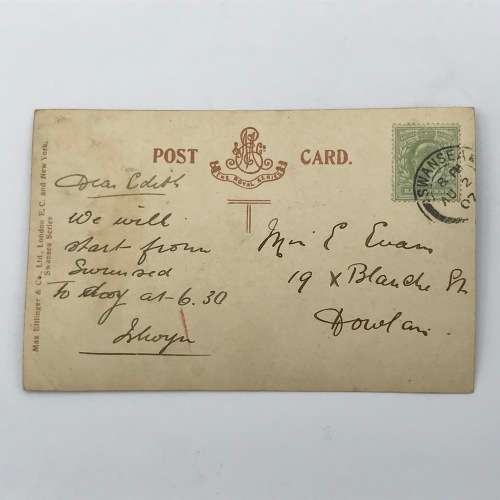 POST CARD.
THE ROYAL SERIES
Max Ettlinger & Co., Ltd., London E. C. and New York.
Swansea Series
SWANSEA
8
AU 2
07
Dear Edith
We will
start from
Swansea
To day at 6.30
Miss E Evans
19 X Blanche St
Dowlais.